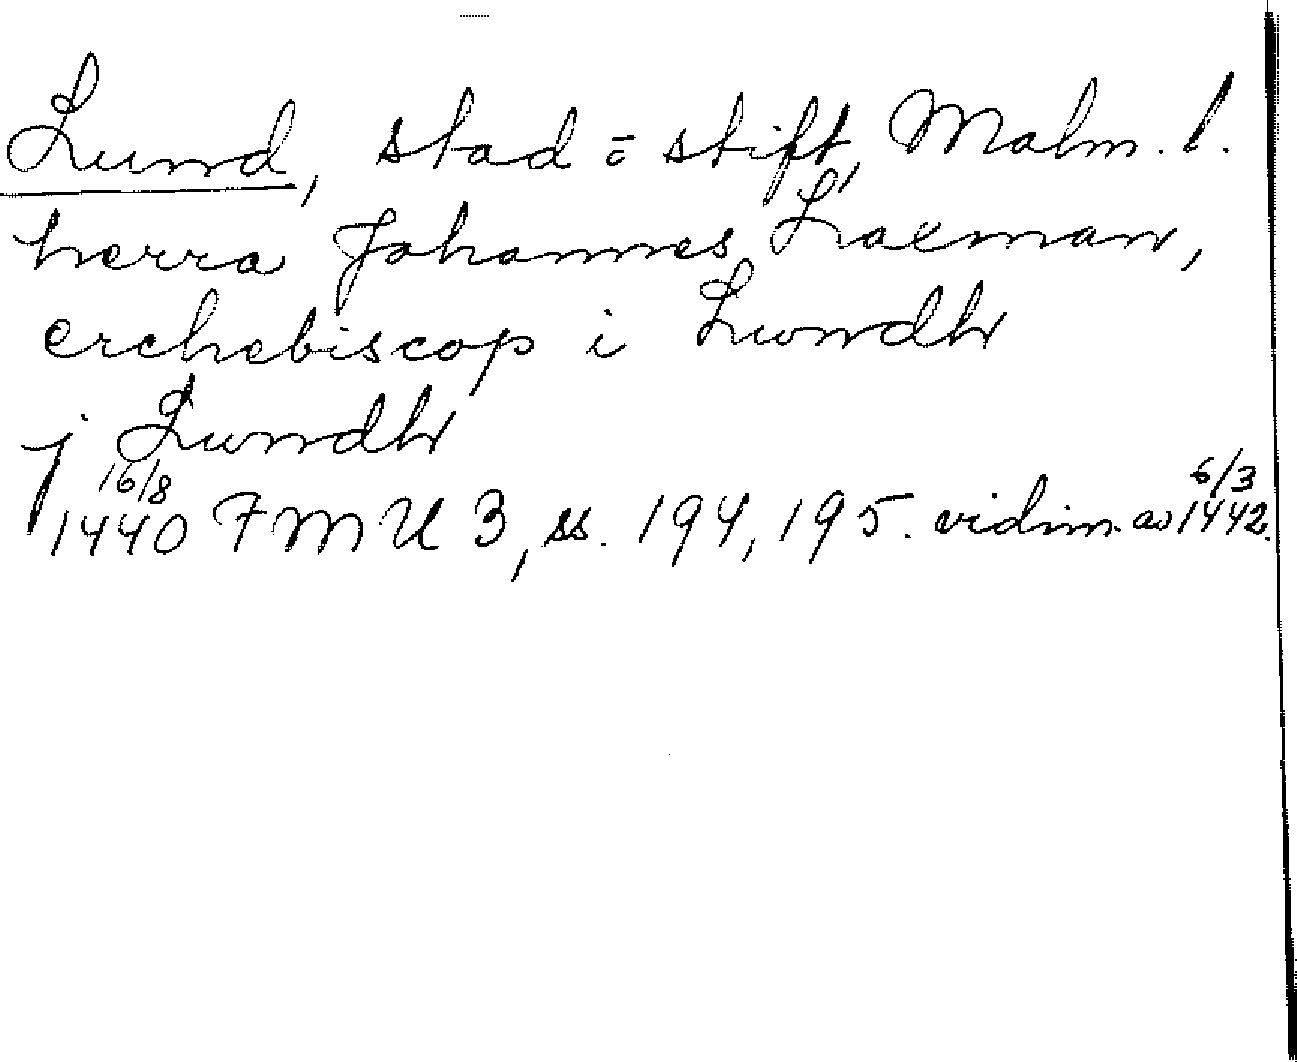 Lund, stad o stift, Malm. l.
herra Johannes Laxman,
erchebiscop i Lundh
j Lundh
16/8 1440 FMU 3, ss. 194, 195. vidim. av 6/3 1442.